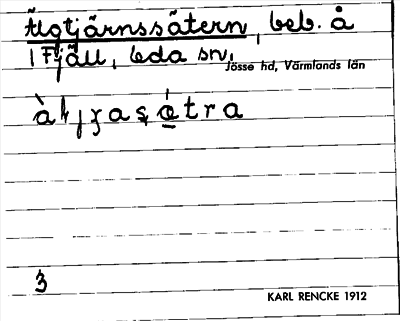 Älgtjärnssätern, beb. å
Fjäll, Eda sn,
Jösse hd, Värmlands län
3
KARL RENCKE 1912